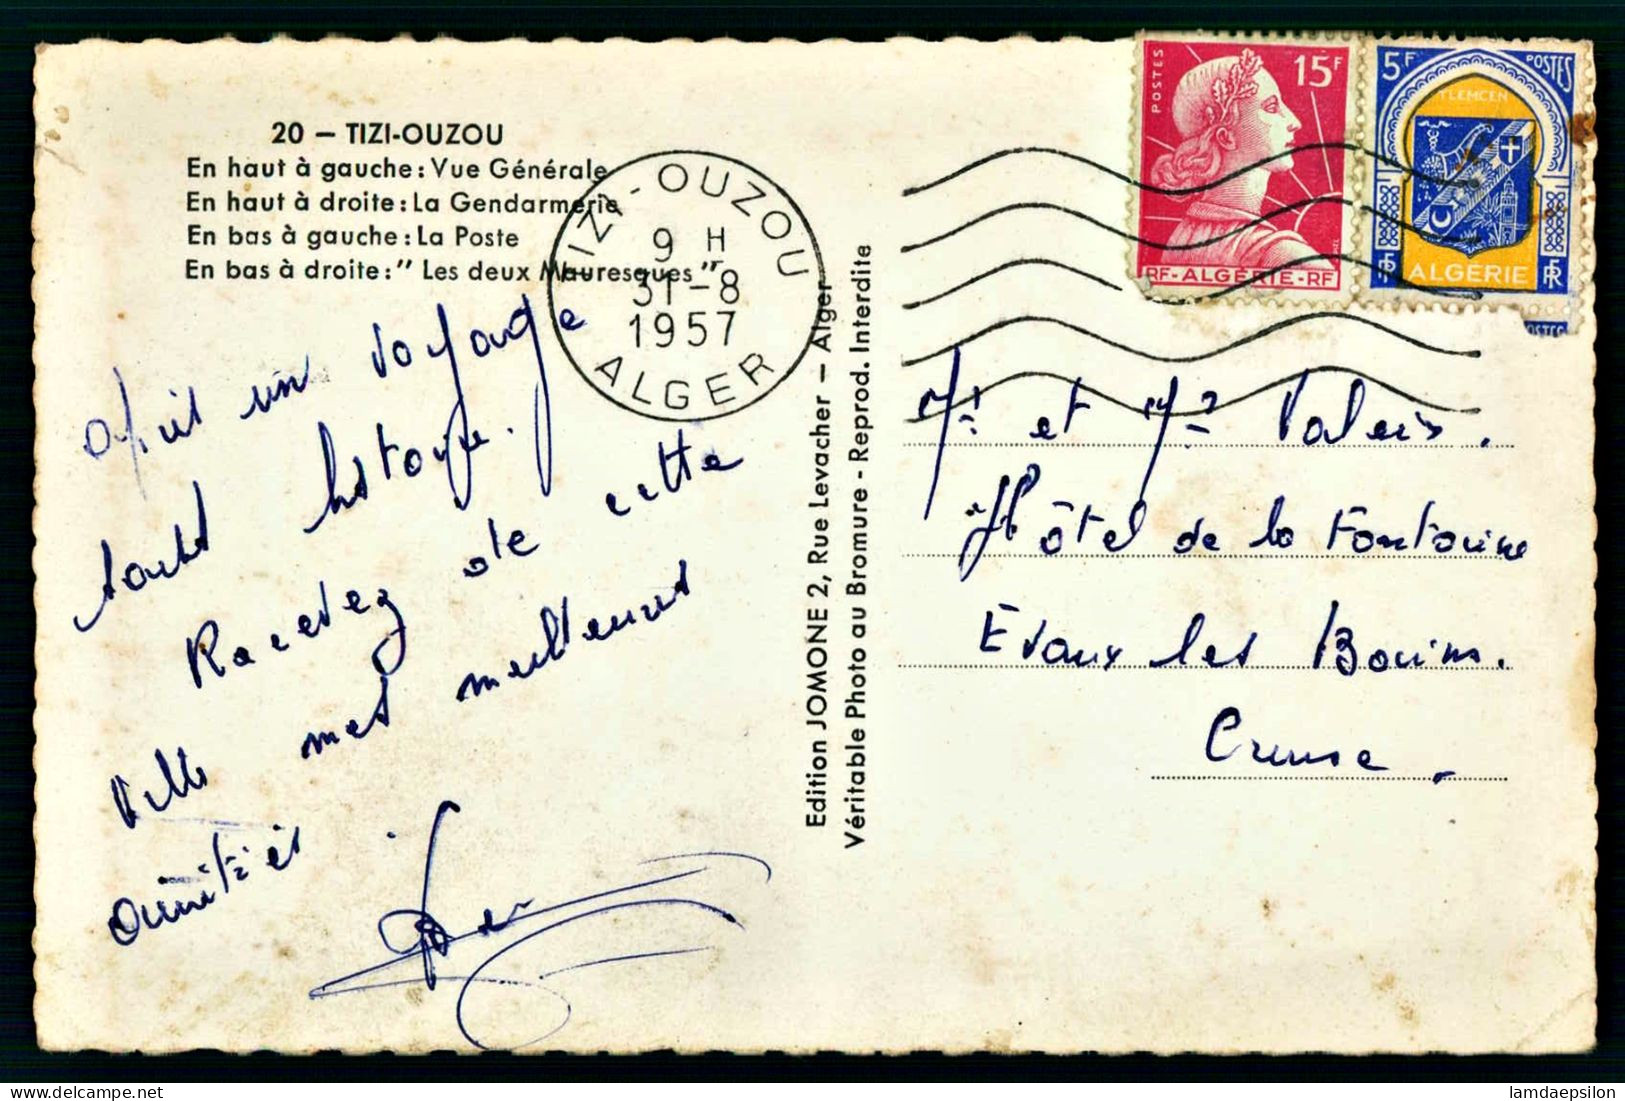 20 – TIZI-OUZOU
En haut à gauche: Vue Générale
En haut à droite: La Gendarmerie
En bas à gauche: La Poste
En bas à droite: " Les deux Mauresques"
TIZI-OUZOU
9 H
31-8
1957
ALGER
POSTES
15F
RF-ALGÉRIE-RF
5F
POSTES
TLEMCEN
ALGÉRIE
RF
POSTES
après un voyage
sans histoire.
Recevez de cette
ville mes meilleures
amitiés
Edition JOMONE 2, Rue Levacher — Alger
Véritable Photo au Bromure - Reprod. Interdite
Mr et Me
Hôtel de la Fontaine
Evaux les Bains.
Creuse.
delcampe.net
lamdaepsilon